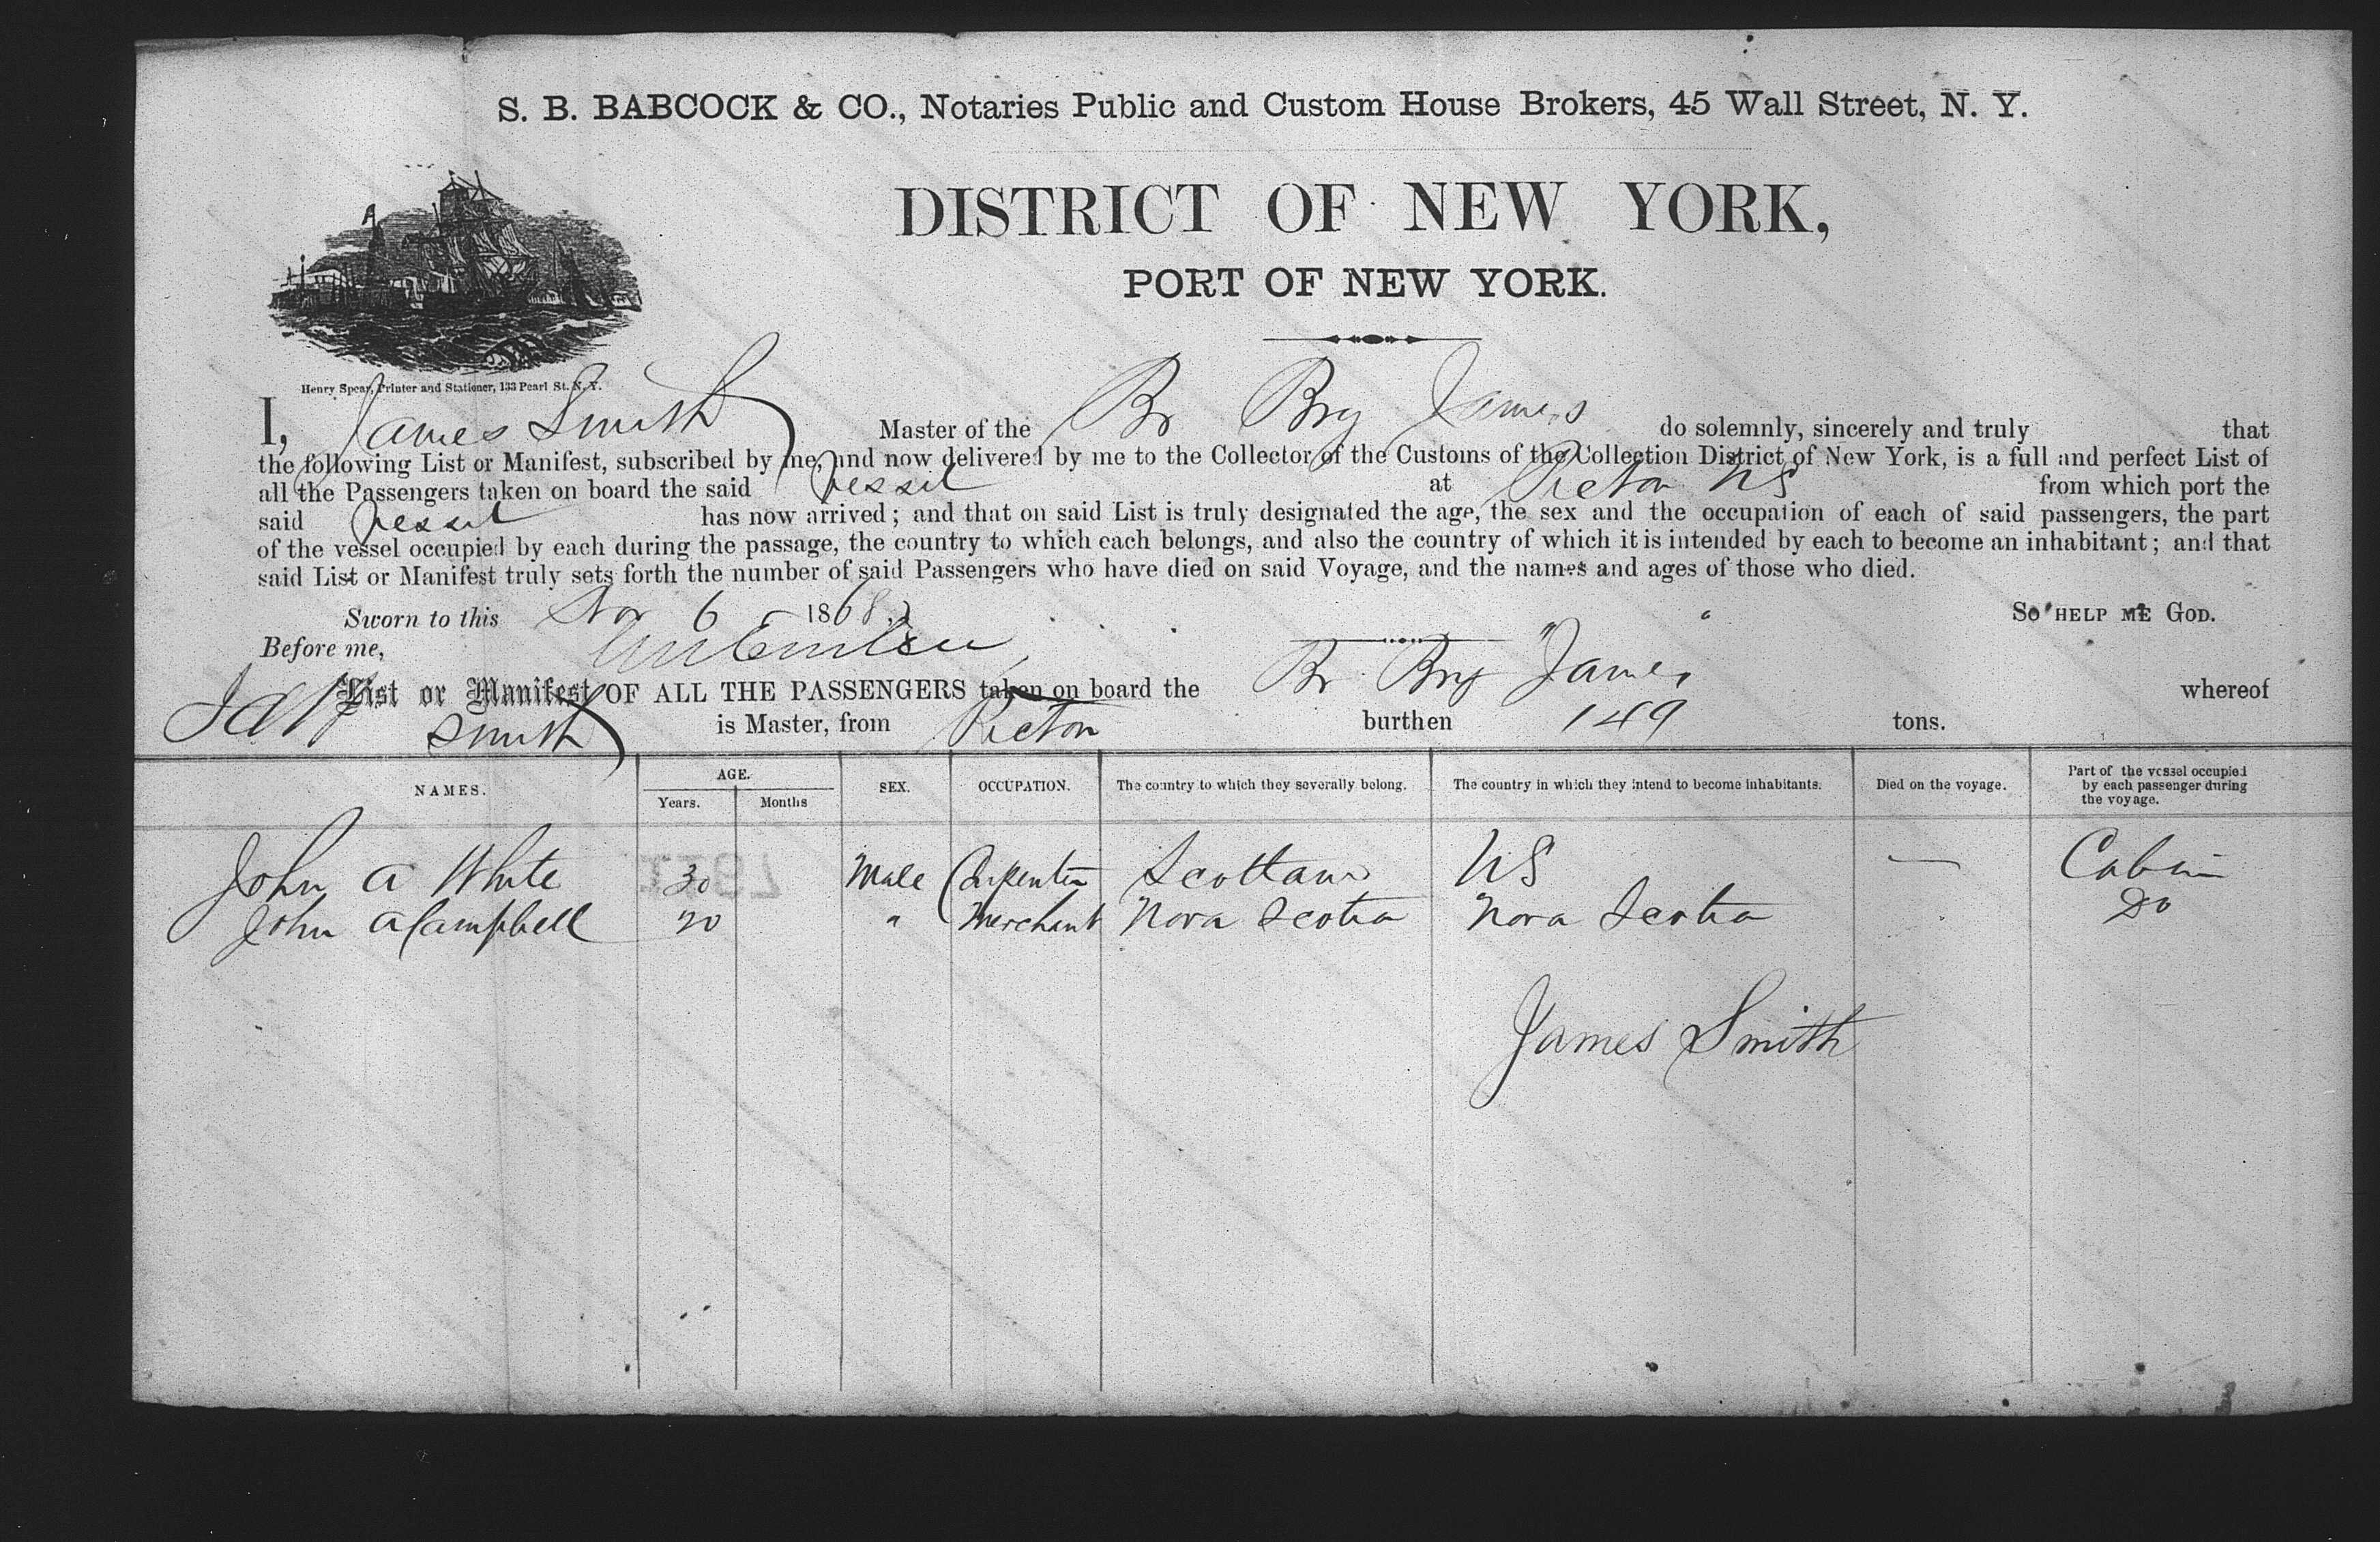 S. B. BABCOCK & CO., Notaries Public and Custom House Brokers, 45 Wall Street, N. Y.
DISTRICT OF NEW YORK,
PORT OF NEW YORK.
Henry Spear, Printer and Stationer, 133 Pearl St. N. Y.
I, James Smith Master of the Br Brg James do solemnly, sincerely and truly that
the following List or Manifest, subscribed by me, and now delivered by me to the Collector of the Customs of the Collection District of New York, is a full and perfect List of
all the Passengers taken on board the said Vessel at Picton NS from which port the
said Vessel has now arrived; and that on said List is truly designated the age, the sex and the occupation of each of said passengers, the part
of the vessel occupied by each during the passage, the country to which each belongs, and also the country of which it is intended by each to become an inhabitant; and that
said List or Manifest truly sets forth the number of said Passengers who have died on said Voyage, and the names and ages of those who died.
Sworn to this Nov 6 1868. SO HELP ME GOD.
Before me,
List or Manifest OF ALL THE PASSENGERS taken on board the Br Brg "James whereof
Smith is Master, from Picton burthen 149 tons.
NAMES. AGE. Years. Months SEX. OCCUPATION. The country to which they severally belong. The country in which they intend to become inhabitants. Died on the voyage. Part of the vessel occupied by each passenger during the voyage.
John A White 30 Male Carpenter Scotland US — Cabin
John A Campbell 20 " Merchant Nova Scotia Nova Scotia Do
James Smith